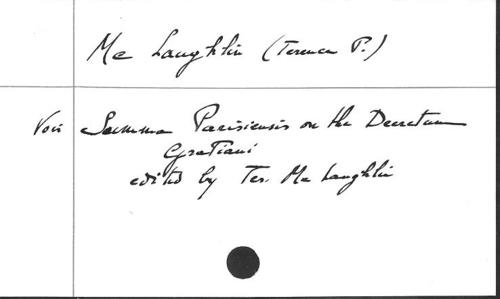 Mc Laughlin (Terence P.)
Voir Summa Parisiensis on the Decretum
Gratiani
edited by Ter. Mc Laughlin